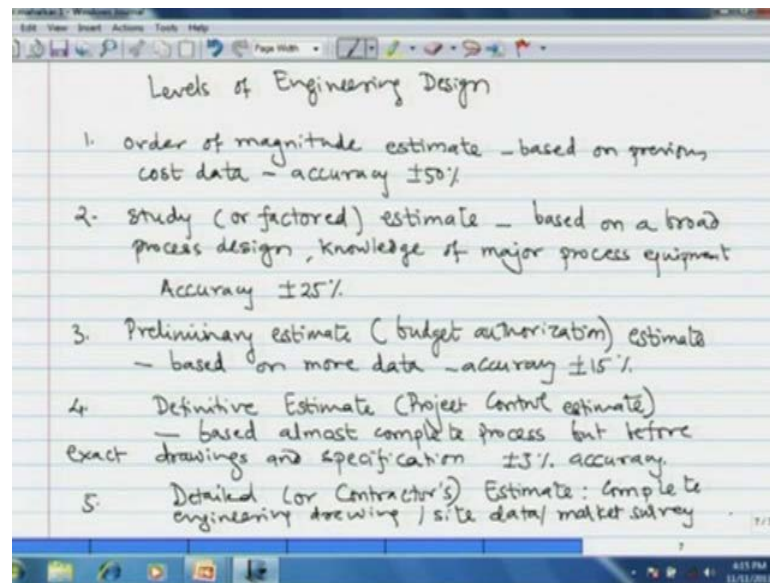 Edit View Insert Actions Tools Help
Page Width
Levels of Engineering Design
1. order of magnitude estimate - based on previous
cost data - accuracy ±50%
2. study (or factored) estimate - based on a broad
process design, knowledge of major process equipment
Accuracy ±25%
3. Preliminary estimate (budget authorization) estimate
- based on more data - accuracy ±15%
4. Definitive Estimate (Project Control estimate)
- based almost complete process but before
exact drawings and specification ±3% accuracy.
5. Detailed (or Contractor's) Estimate: Complete
engineering drawing / site data / market survey
7
4:15 PM